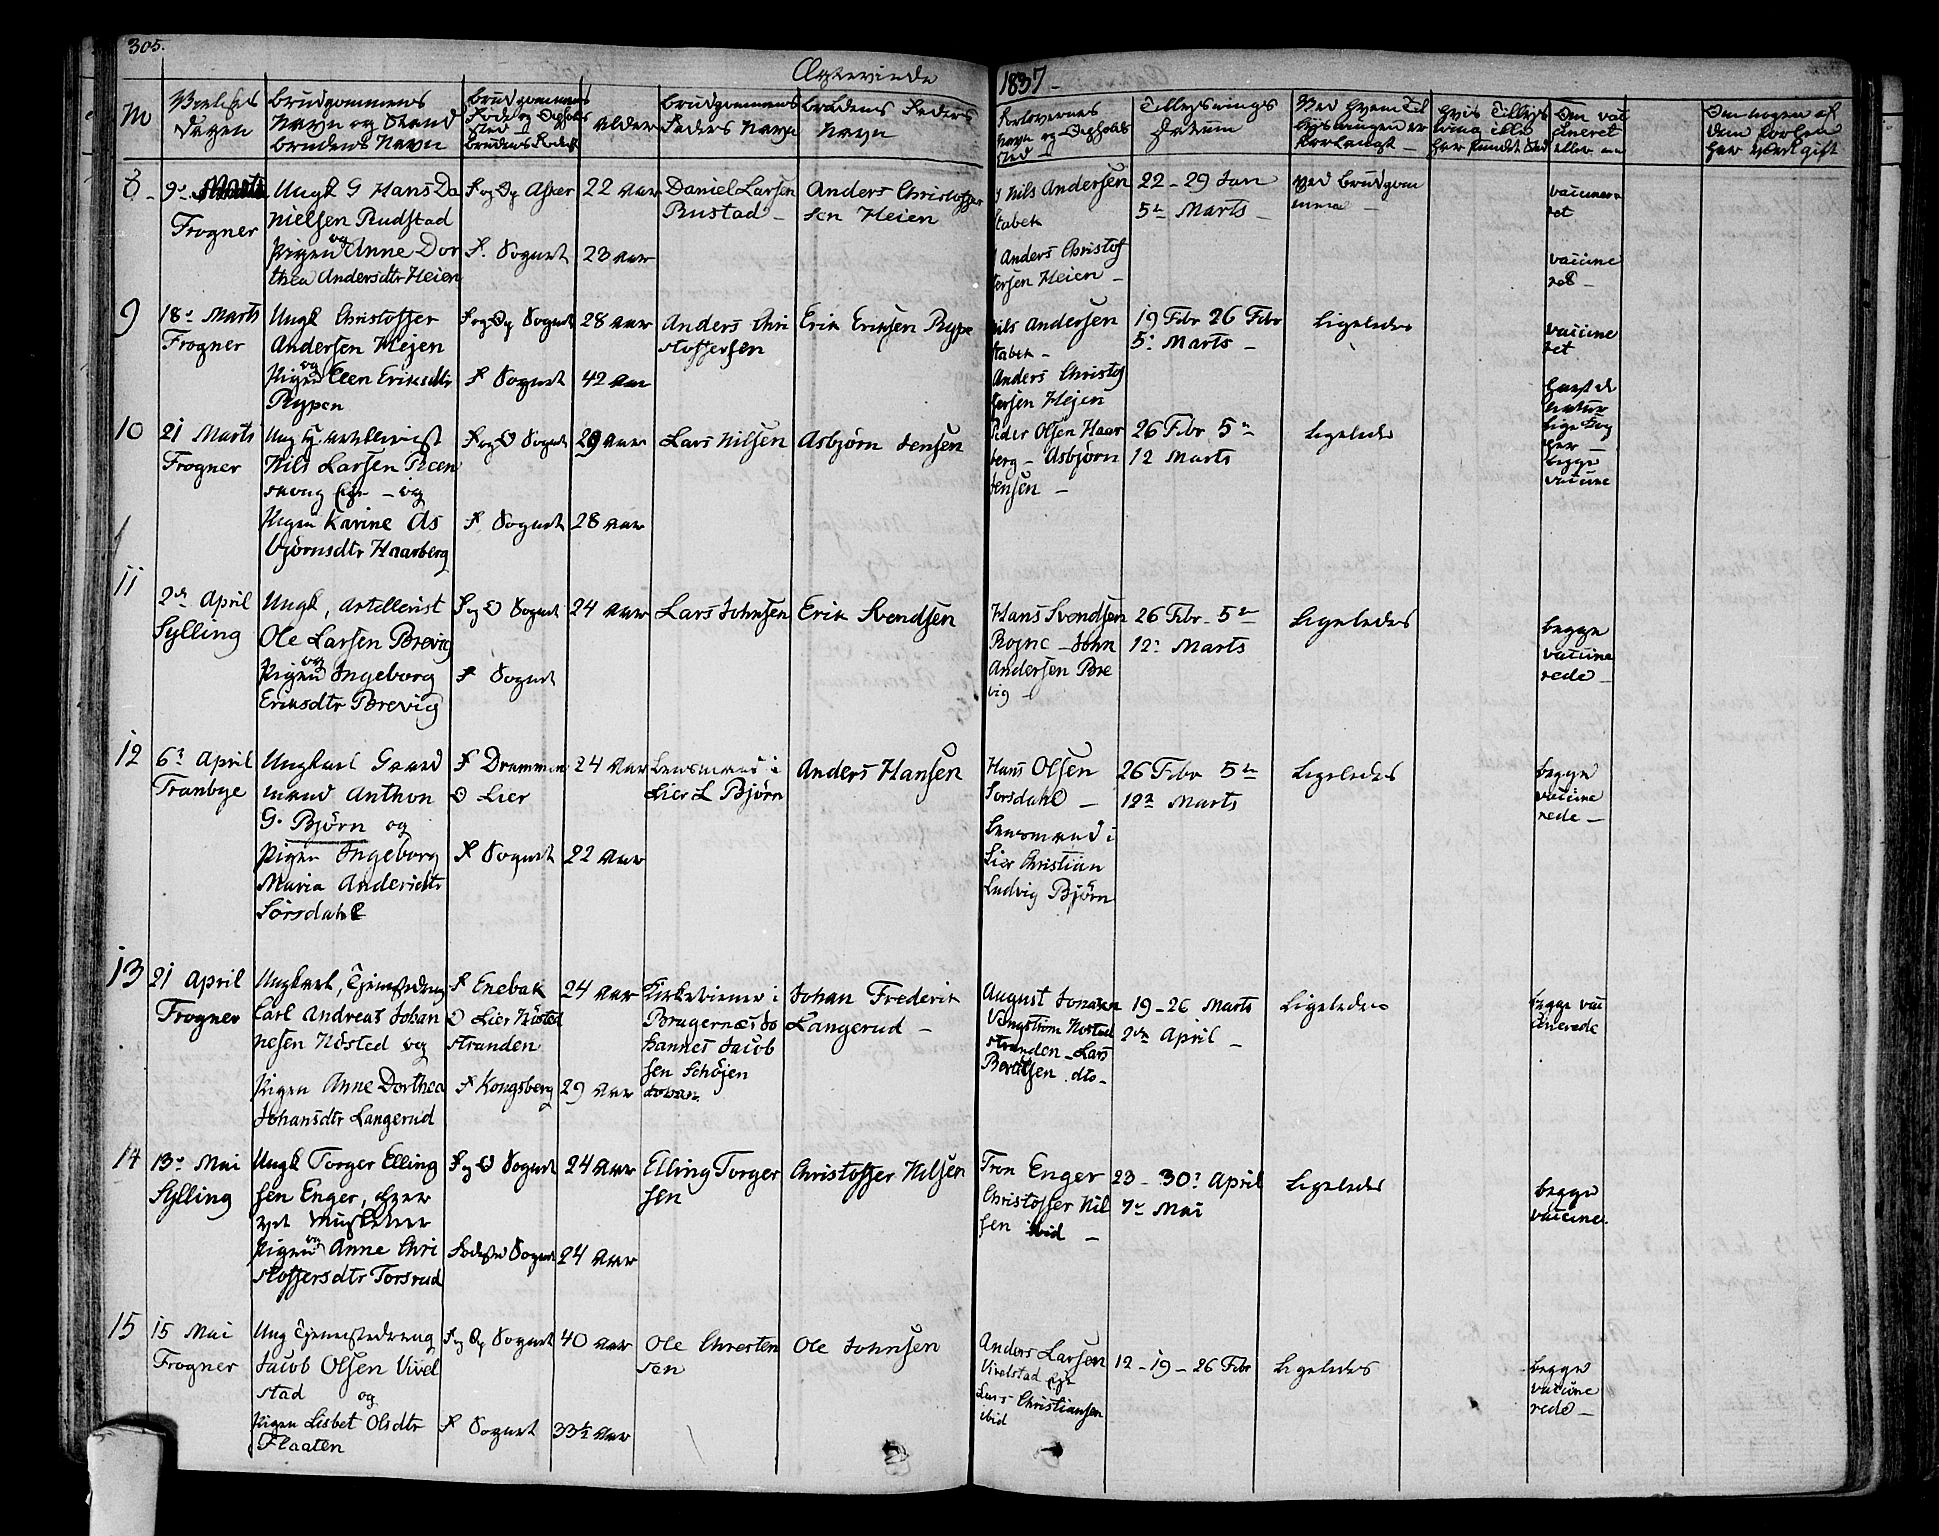 305.
Ægteviede
1837 -
No
Vielses
Dagen
Brudgommens
Navn og Stand
Brudens Navn
Brudgommens
Føde og Opholds
sted
Brudens Fødest
Alder
Brudgommens
Faders Navn
Brudens Faders
Navn
Forlovernes
Navn og Opholds
sted
Tillysnings
Datum
Ved hvem Til
lysningen er
forlangt -
Hvis Tillys
ning ikke
har fundet Sted
Om vac
cineret
eller
Om nogen af
dem forhen
har været gift
8 -
9de Marts
Frogner
Ungk G Hans Da
nielsen Rudstad
og
Pigen Anne Dor
thea Andersdtr Heien
F og Op Asker
F. Sognet
22 Aar
23 Aar
Daniel Larsen
Rustad -
Anders Christoffer
sen Heien
Nils Andersen
Stabek
Anders Christof
fersen Heien -
22 - 29 Jan
5te Marts -
Ved Brudgom
men -
vaccine
ret
vaccine
ret -
9
18de Marts
Frogner
Ungk Christoffer
Andersen Hejen
og
Pigen Elen Eriksdtr
Rypen
F og Op Sognet
F Sognet
28 Aar
42 Aar
Anders Chri
stoffersen
Erik Eriksen Rype
Nils Andersen
Stabek -
Anders Christof
fersen Hejen
19 Febr 26 Febr
5te Marts -
Ligeledes
vaccine
ret
havt de
natur
lige Kop
per -
10
21 Marts
Frogner
Ung K Artillerist
Nils Larsen Reen
skoug Eje - og
Pigen Karine As
bjørnsdtr Haarberg
F og O Sognet
F. Sognet
29 Aar
28 Aar
Lars Nilsen
Asbjørn Jensen
Peder Olsen Haar
berg - Asbjørn
Jensen -
26 Febr 5te
12 Marts
Ligeledes
begge
vaccine
11
2den April
Sylling
Ungk, Artillerist
Ole Larsen Brevig
og
Pigen Ingeborg
Eriksdtr Brevig
F og O Sognet
F Sognet
24 Aar
Lars Johnsen
Erik Svendsen
Hans Svendsen
Rogne - John
Andersen Bre
vig -
26 Febr - 5te
12te Marts
Ligeledes
begge
vaccine
rede -
12
6te April
Tranbye
Ungkarl Gaard
mand Anthon
G. Bjørn og
Pigen Ingeborg
Maria Andersdtr
Sørsdahl
F Drammen
O Lier
F Sognet
24 Aar
22 Aar
Lensmand i
Lier L Bjørn
Anders Hansen
Hans Olsen
Sorsdahl -
Lensmand i
Lier Christian
Ludvig Bjørn
26 Febr 5te
12te Marts
Ligeledes
begge
vaccine
rede -
13
21 April
Frogner
Ungkarl, Tjenestedreng
Carl Andreas Johan
nesen Nøsted og
Pigen Anne Dorthea
Johansdtr Langerud
F Enebak
O Lier Nøsted
stranden
F Kongsberg
24 Aar
29 Aar
Kirketiener i
Bragernæs Jo
hannes Jacob
sen Schøjen
Johan Frederik
Langerud -
August Jonasen
Vengstrøm Nøsted
stranden - Lars
Berntsen dto -
19 - 26 Marts
2den April -
Ligeledes
begge vac
cinerede
14
13de Mai
Sylling
Ungk Torger Elling
sen Enger, herr
vet Musketeer
og
Pigen Anne Chri
stoffersdtr Torsrud
F og O Sognet
Fødested Sognet
24 Aar
24 Aar
Elling Torger
sen
Christoffer Nilsen
Tron Enger
Christoffer Nil
sen ibid -
23 - 30te April
7de Mai
Ligeledes
begge
vaccine
15
15 Mai
Frogner
Ung Tjenestedreng
Jacob Olsen Vivel
stad og
Pigen Lisbet Olsdtr
Flaaten
F og Op Sognet
F Sognet
40 Aar
33½ Aar
Ole Chresten
sen
Ole Johnsen
Anders Larsen
Vivelstad Eje
Lars Christiansen
ibid
12 - 19 - 26 Febr
Ligeledes
begge
vaccine
rede -